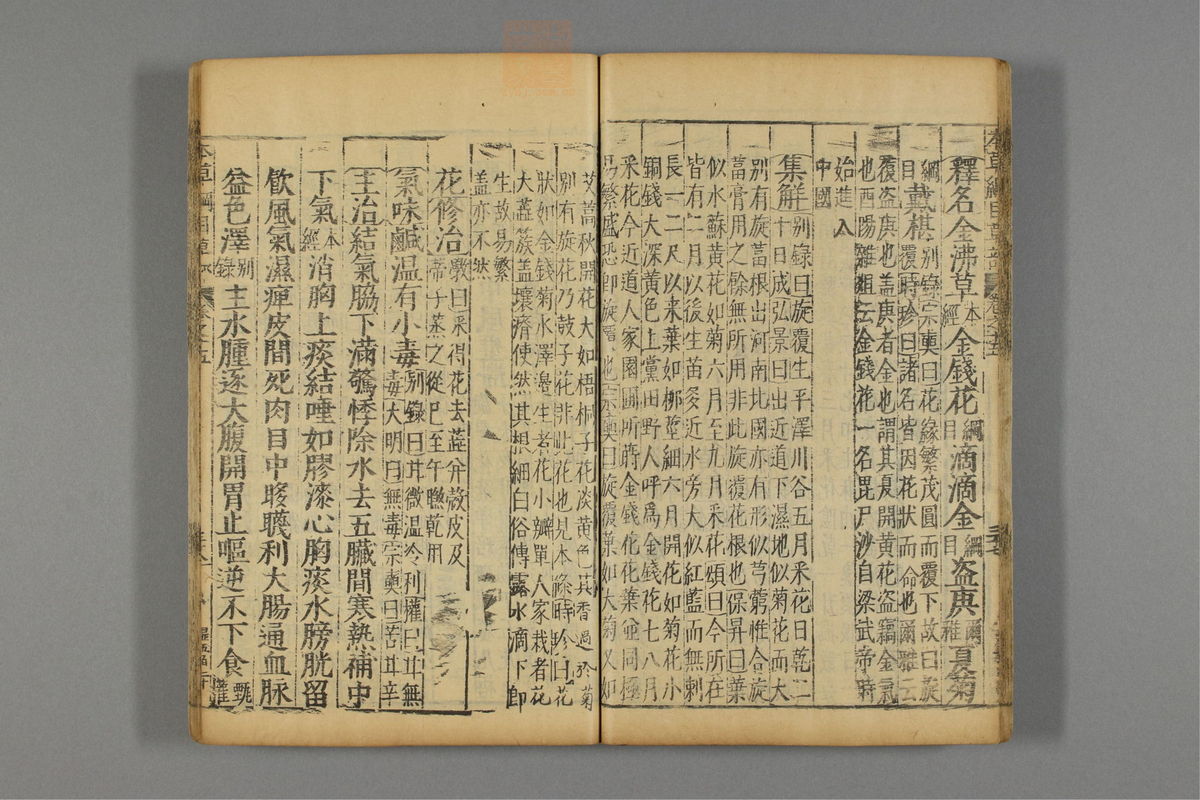 釋名金沸草本經金錢花綱目滴滴金綱目盜庚爾雅夏菊
綱目戴椹别錄宗奭曰花緣繁茂圓而覆下故曰旋
覆時珍曰諸名皆因花狀而命也爾雅云
覆盜庚也盖庚者金也謂其夏開黄花盜竊金氣
也酉陽雜俎云金錢花一名毘尸沙自梁武帝時
始進入
中國
集解别錄曰旋覆生平澤川谷五月采花日乾二
十日成弘景曰出近道下濕地似菊花而大
别有旋葍根出河南北國亦有形似芎藭惟合旋
葍膏用之餘無所用非此旋覆花根也保昇曰葉
似水蘇黄花如菊六月至九月采花頌曰今所在
皆有二月以後生苗多近水旁大似紅藍而無刺
長一二尺以來葉如柳莖細六月開花如菊花小
銅錢大深黄色上黨田野人呼爲金錢花七八月
采花今近道人家園圃所蒔金錢花花葉並同極
易繁盛恐即旋覆也宗奭曰旋覆葉如大菊又如
艾蒿秋開花大如梧桐子花淡黄色其香過於菊
别有旋花乃鼓子花非此花也見本條時珍曰花
狀如金錢菊水澤邊生者花小瓣單人家栽者花
大蕋簇盖壤瘠使然其根細白俗傳露水滴下即
生故易繁
盖亦不然
花修治斆曰采得花去蕋并殻皮及
蒂子蒸之從巳至午晒乾用
氣味鹹温有小毒别錄曰甘微温冷利權曰甘無
毒大明曰無毒宗奭曰苦甘辛
主治結氣脇下滿驚悸除水去五臟間寒熱補中
下氣本經消胸上痰結唾如膠漆心胸痰水膀胱留
飲風氣濕痺皮間死肉目中眵䁾利大腸通血脉
益色澤别錄主水腫逐大腹開胃止嘔逆不下食甄權